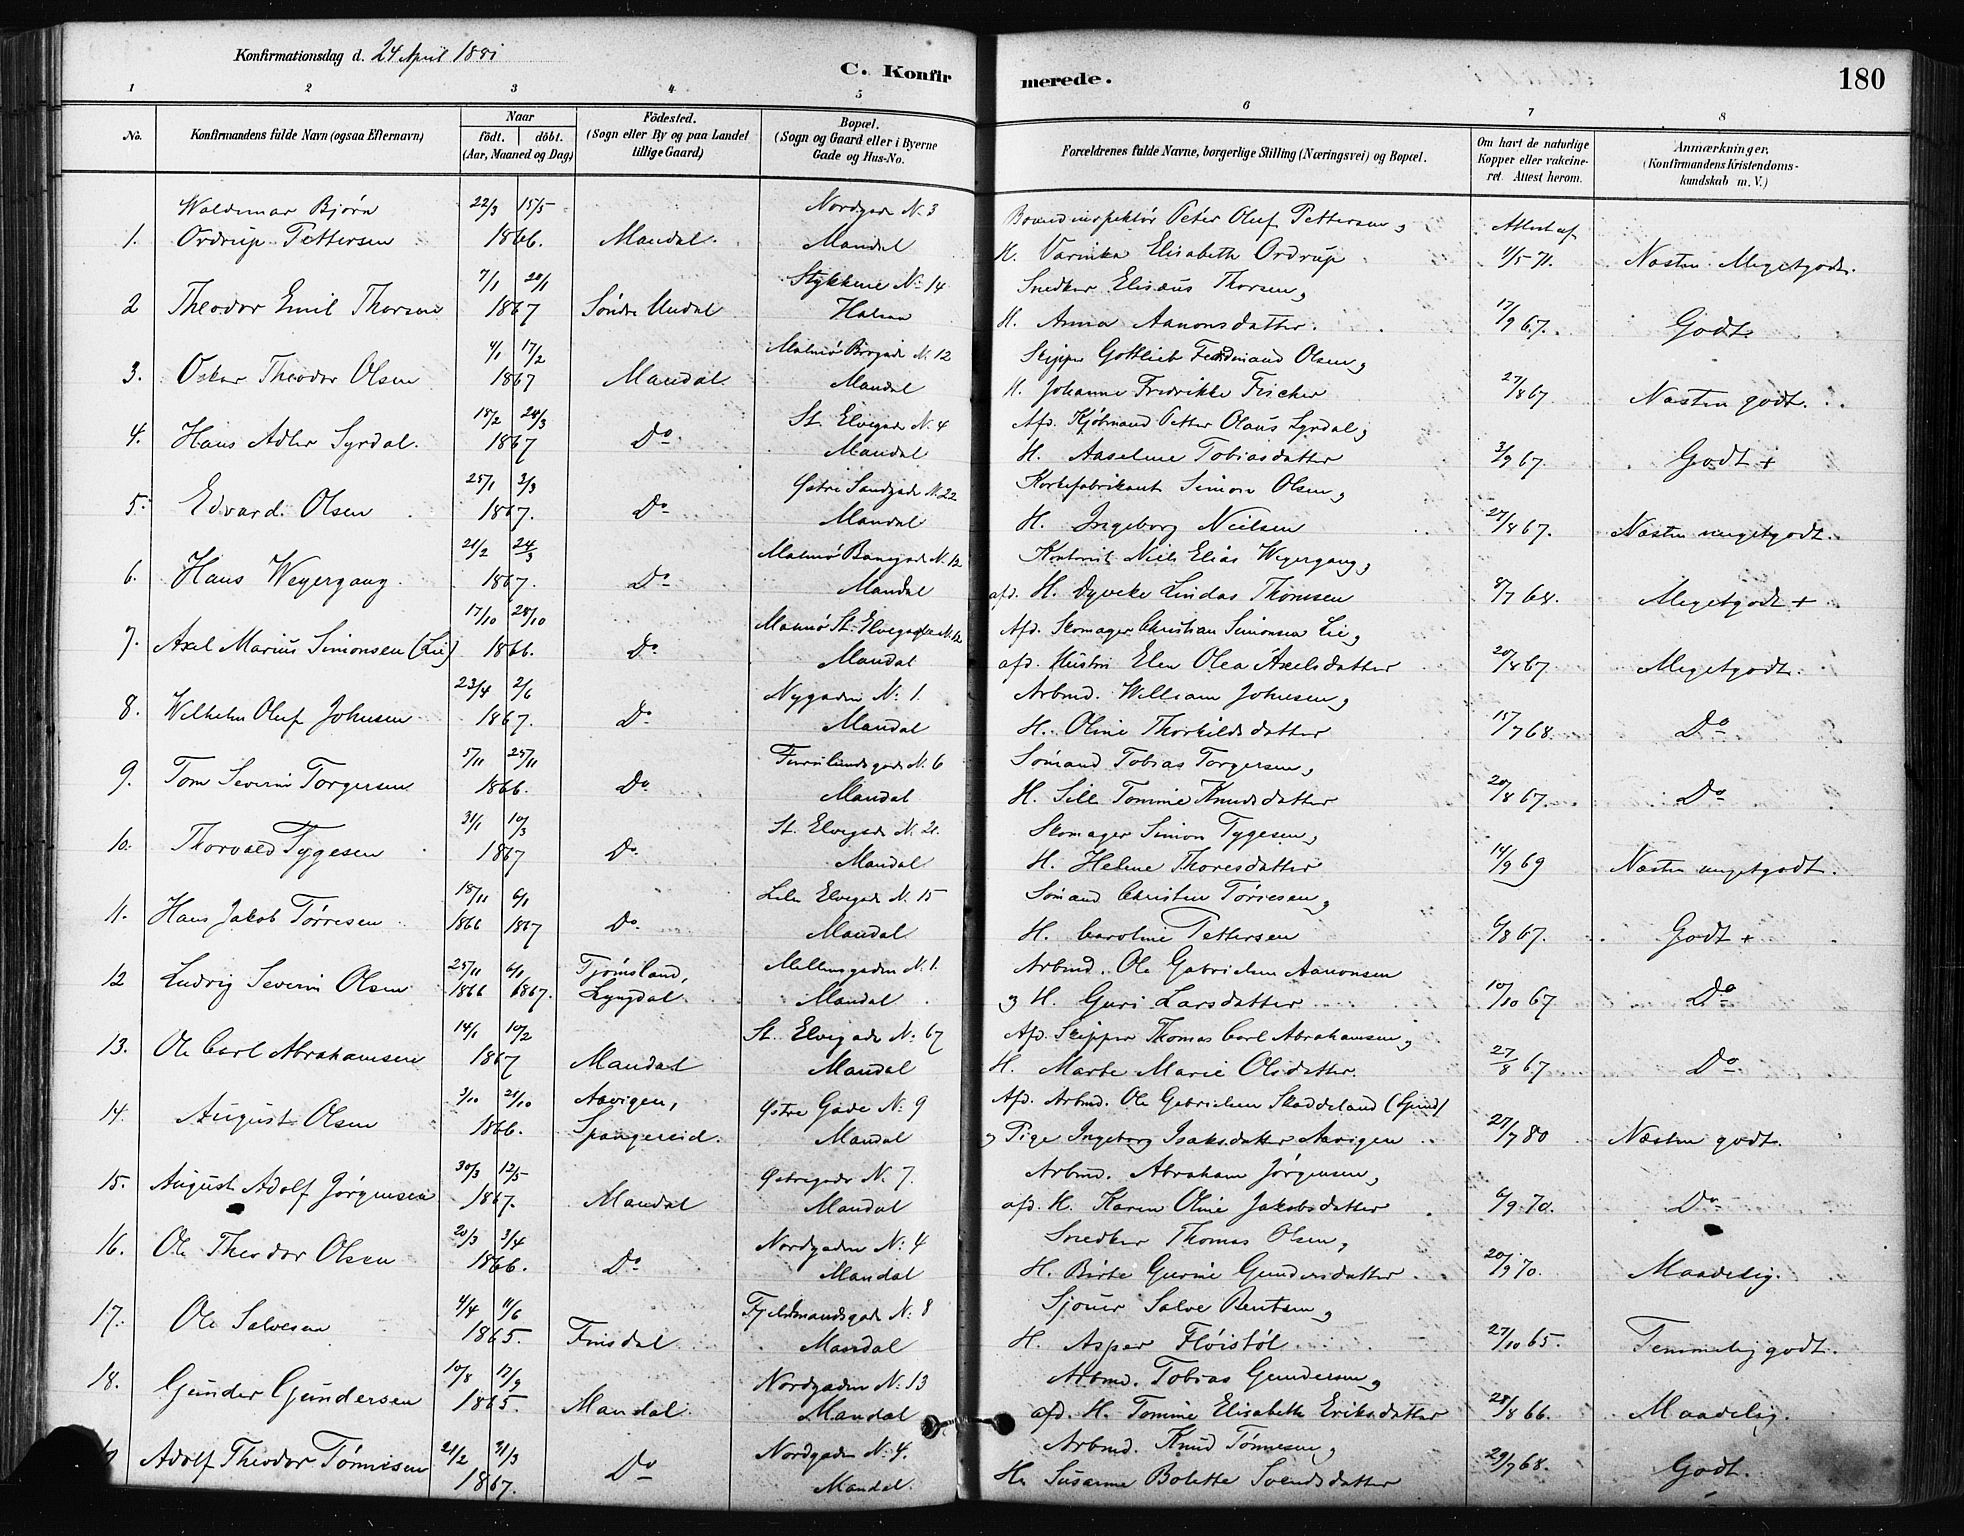 Konfirmationsdag d. 24 April 1881
C. Konfirmerede.
180
1 2 3 4 5 6 7 8
No.
Konfirmandens fulde Navn (ogsaa Efternavn)
Naar
födt. döbt.
(Aar, Maaned og Dag)
Födested.
(Sogn eller By og paa Landet tillige Gaard)
Bopæl.
(Sogn og Gaard eller i Byerne Gade og Hus-No.
Forældrenes fulde Navne, borgerlige Stilling (Næringsvei) og Bopæl.
Om havt de naturlige Kopper eller vakcineret. Attest herom.
Anmærkninger.
(Konfirmandens Kristendomskundskab m. V.)
1. Waldemar Bjørn Ordrup Pettersen 22/3 15/5 1866. Mandal. Nordgade N. 3 Mandal Peter Oluf Pettersen, H. Varinka Elisabeth Ordrup Attest af 4/5 71. Næsten Megetgodt.
2 Theodor Emil Thorsen 7/1 20/1 1867 Søndre Undal Stykkene No 14 Halsaa Snedker Elisæus Thorsen, H. Anna Aanonsdatter. 17/9 67. Godt.
3. Oskar Theodor Olsen 4/1 17/2 1867 Mandal Malmø Brogade N. 12 Mandal Skipper Gottlieb Ferdinand Olsen, H. Johanne Fredrikke Fischer 27/8 67 Næsten godt.
4. Hans Adler Syrdal. 18/2 24/3 1867 Do St. Elvegade N. 4 Mandal Afd. Kjøbmand Petter Olaus Syrdal, H. Aaseline Tobiasdatter 3/9 67. Godt +
5. Edvard Olsen 25/1 3/3 1867. Do Østre Sandgade N. 22 Mandal Korkefabrikant Simon Olsen, H. Ingeborg Nielsen 27/8 67. Næsten megetgodt.
6. Hans Weyergang. 21/2 24/3 1867. Do Malmø N. 12 Mandal Niels Elias Weyergang, afd. H. Dyveke Lindas Thomsen 8/7 68. Megetgodt +
7. Axel Marius Simonsen (Lie) 17/10 28/10 1866. Do Malmø St. Elvegade N. 12 Mandal Afd. Skomager Christian Simonsen Lie, afd. Hustru Elen Olea Axelsdatter 20/8 67. Megetgodt.
8. Wilhelm Oluf Johnsen 23/4 2/6 1867. Do Nygaden N. 1. Mandal Arbmd. William Johnsen, H. Oline Thorkildsdatter 15/7 68. Do
9. Tom Severin Torgersen 5/11 25/11 1866. Do N. 6 Mandal Sømand Tobias Torgersen, H. Sille Tomine Knudsdatter 20/8 67. Do
10. Thorvald Tygesen 31/1 10/3 1867 Do St. Elvegade N. 21. Mandal Skomager Simon Tygesen, H. Helene Thoresdatter 14/9 69 Næsten megetgodt.
11. Hans Jakob Tørresen 18/11 1866 6/1 1867 Do Lille Elvegade N. 15 Mandal Sømand Christen Tørresen, H. Caroline Pettersen 6/8 67. Godt +
12 Ludvig Severin Olsen 25/11 1866 6/1 1867. Tjømsland, Lyngdal. Mellemgaden N. 1. Mandal Arbmd. Ole Gabrielsen Aanonsen og H. Guri Larsdatter 10/10 67 Do
13. Ole Carl Abrahamsen 14/1 10/2 1867 Mandal St. Elvegade N. 67 Mandal Afd. Skipper Thomas Carl Abrahamsen, H. Marte Marie Olsdatter. 27/8 67 Do
14. August Olsen 3/10 21/10 1866. Aavigen, Spangereid. Østre Gade N. 9 Mandal Afd. Arbmd. Ole Gabrielsen Skaddeland og Pige Ingeborg Isaksdatter Aavigen 27/7 80 Næsten godt.
15. August Adolf Jørgensen 30/3 12/5 1867. Mandal Østregade N. 7. Mandal Arbmd. Abraham Jørgensen, afd. H. Karen Oline Jakobsdatter 6/9 70. Do
16. Ole Theodor Olsen 20/3 3/4 1866. Do Nordgaden N. 4 Mandal Snedker Thomas Olsen, H. Birte Gurine Gundersdatter 20/9 70. Maadelig.
17. Ole Salvesen 4/4 11/6 1865. Finsdal N. 8 Mandal Sjouer Salve Berntsen, H. Asper Fløistøl 27/10 65. Temmelig godt.
18. Gunder Gundersen 10/8 17/9 1865. Mandal. Nordgaden N. 13 Mandal Arbmd. Tobias Gundersen, afd. H. Tomine Elisabeth Eriksdatter 28/8 66. Maadelig.
Adolf Theodor Tønnesen 21/2 31/3 1867. Do Nordgaden N. 4. Mandal. Arbmd. Knud Tønnesen, H. Susanne Bolette Svendsdatter 29/7 68. Godt.